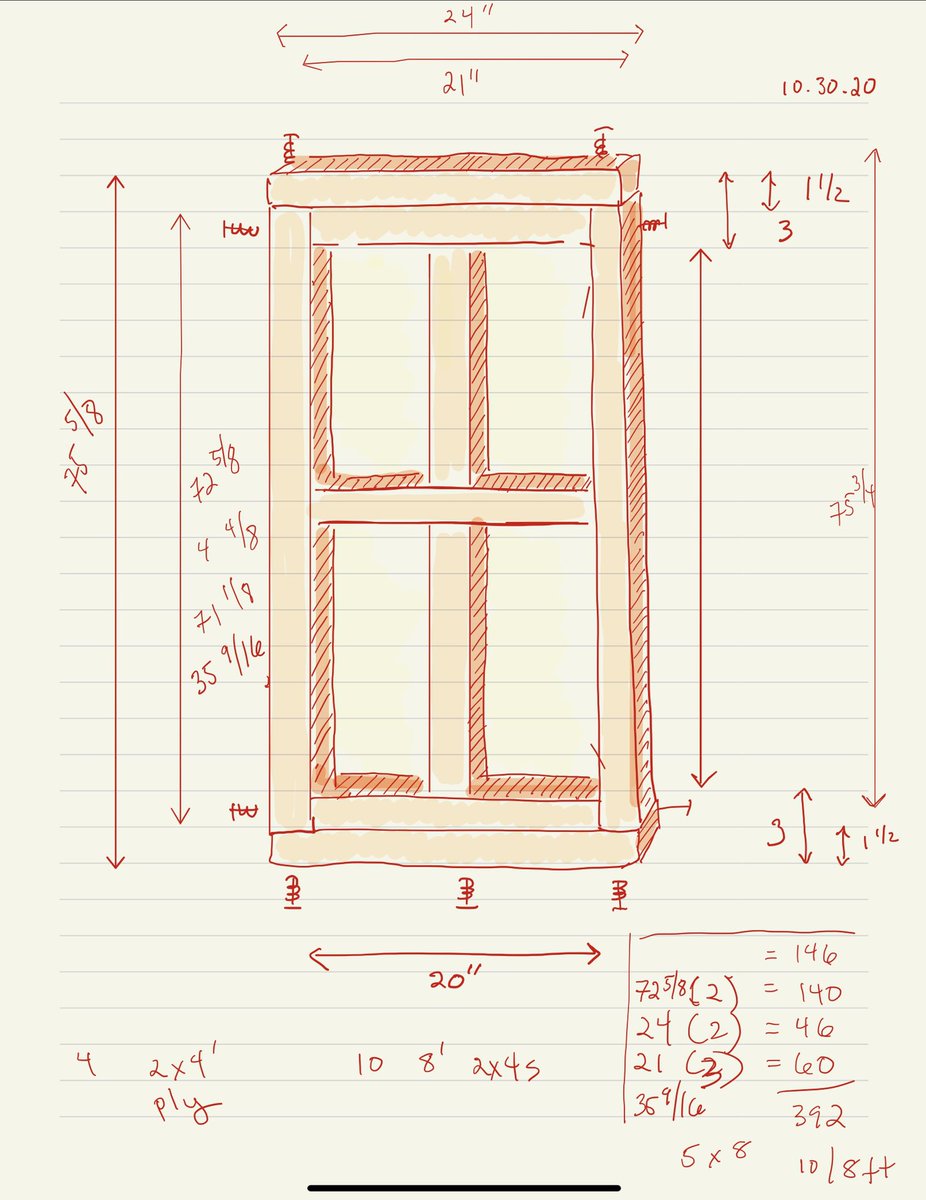 24"
21"
10.30.20
1 1/2
3
5/8
72 5/8
4 4/8
71 1/8
35 9/16
75 3/4
3
1 1/2
20"
= 146
72 5/8 (2) = 140
24 (2) = 46
21 (3) = 60
35 9/16
392
4 2x4' 10 8' 2x4s
ply
5 x 8
10/8ft